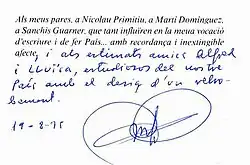 Als meus pares, a Nicolau Primitiu, a Martí Domínguez,
a Sanchis Guarner, que tant influïren en la meua vocació
d'escriure i de fer País... amb recordança i inextingible
afecte, i als estimats amics Alfred
i Lluïsa, estudiosos del nostre
País amb el desig d'un retro-
bament.
19-8-75